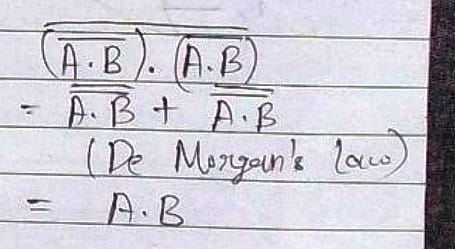 $\overline{(\overline{A \cdot B}) \cdot (\overline{A \cdot B})}$
= $\overline{\overline{A \cdot B}} + \overline{\overline{A \cdot B}}$
(De Morgan's law)
= A·B